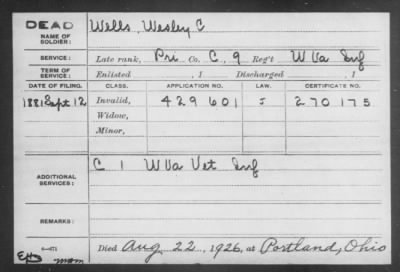 DEAD
NAME OF SOLDIER: Wells, Wesley C
SERVICE: Late rank, Pri Co. C, 9 Reg't W Va Inf
TERM OF SERVICE: Enlisted , 1 Discharged , 1
DATE OF FILING. CLASS. APPLICATION NO. LAW. CERTIFICATE NO.
1881 Sept 12 Invalid, 429601 J 270175
Widow,
Minor,
ADDITIONAL SERVICES: C 1 W Va Vet Inf
REMARKS:
6—671
Died Aug 22, 1926, at Portland, Ohio